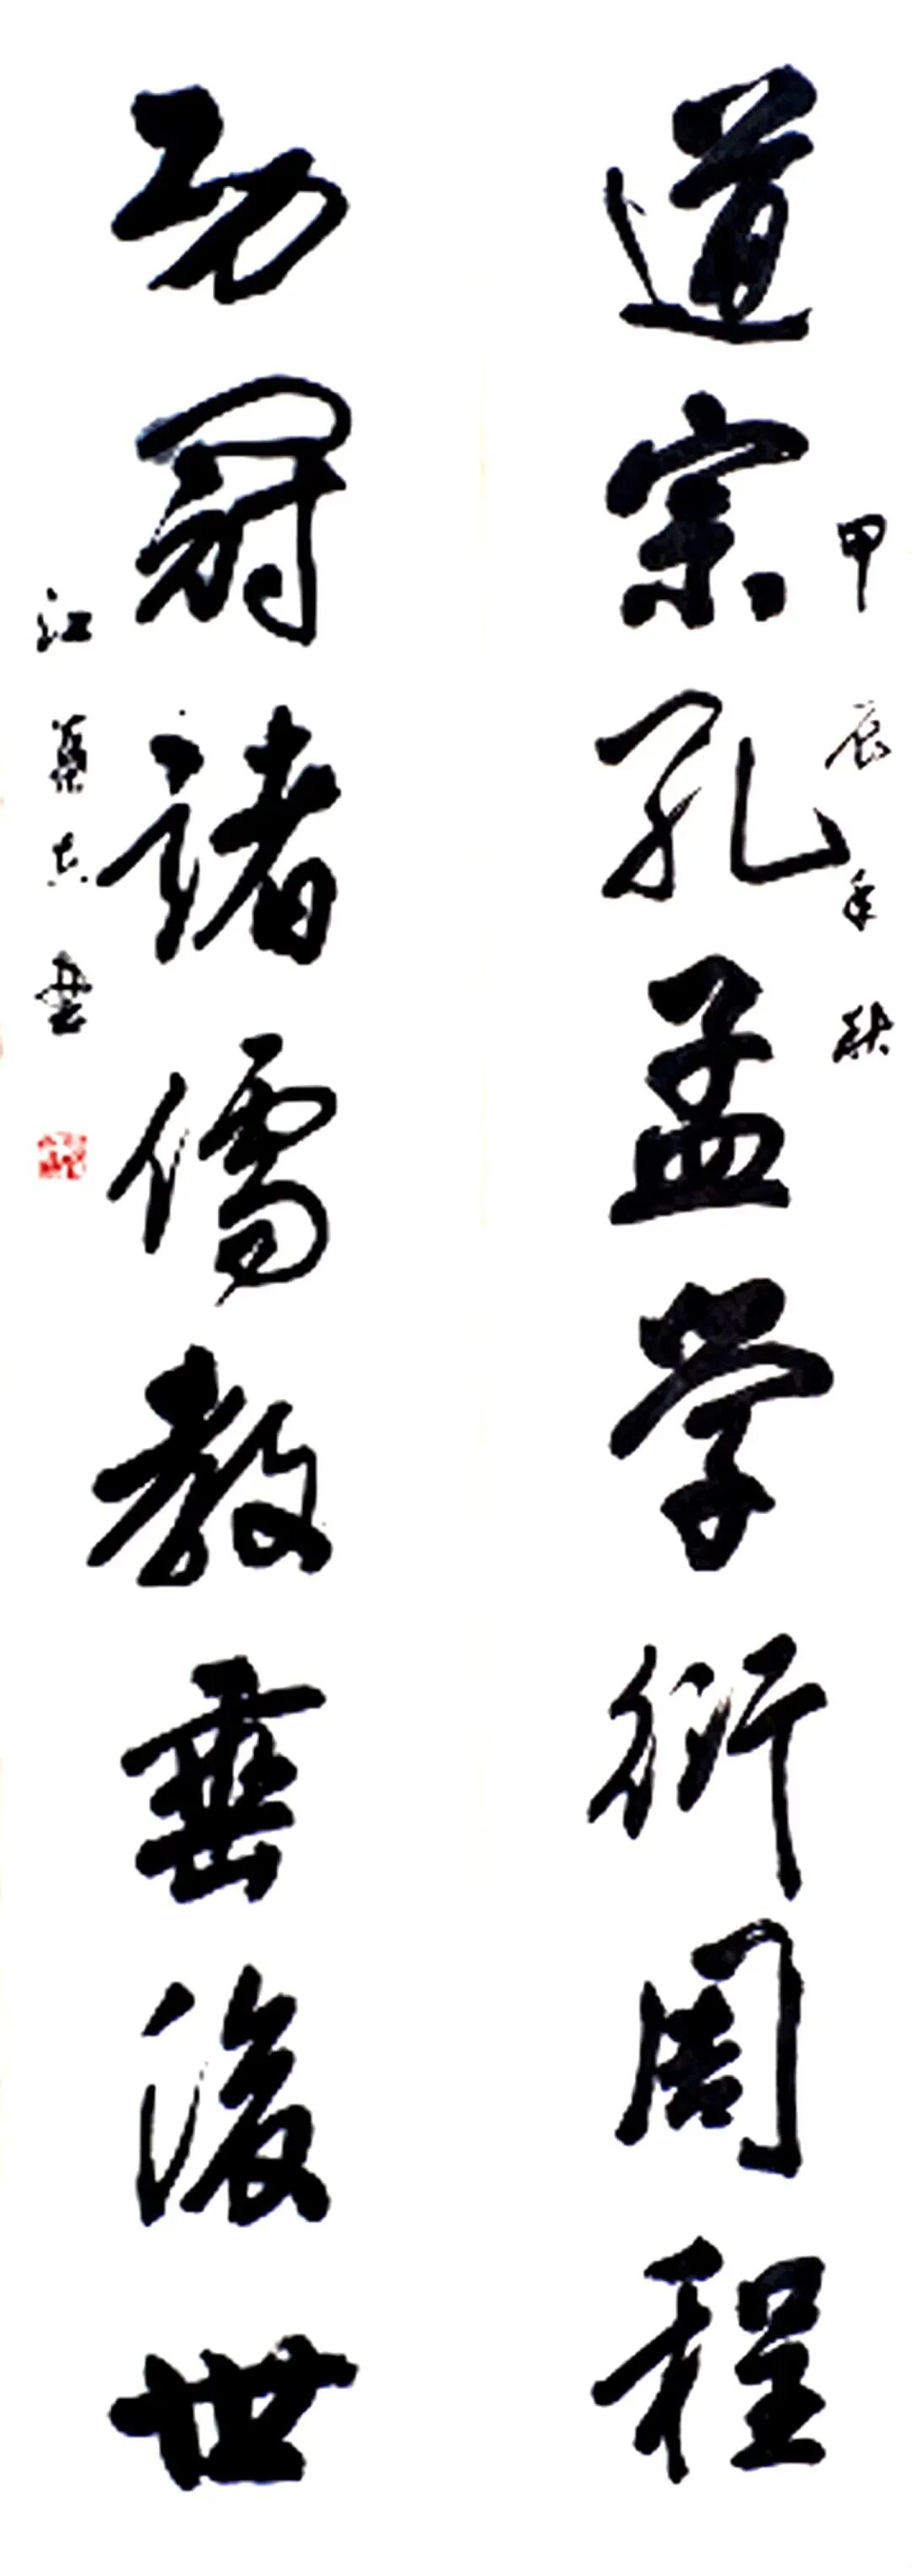 道宗孔孟学衍周程
甲辰年秋
功冠諸儒教垂後世
江 書